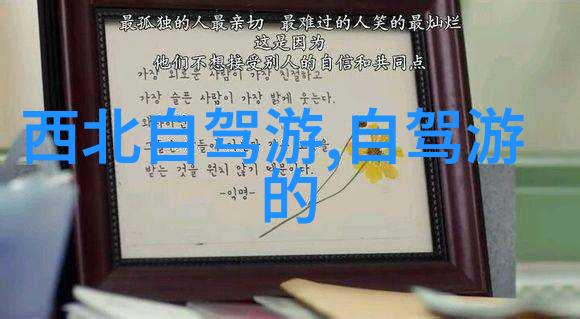 最孤独的人最亲切 最难过的人笑的最灿烂
这是因为
他们不想接受别人的自信和共同点
가장 외로운 사람이 가장 친절하고
가장 슬픈 사람이 가장 밝게 웃는다.
西北自驾游,自驾游
的
받는 것을 원치 않기 때문이다.
-익명-